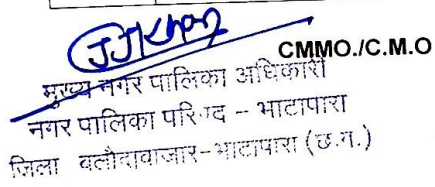 CMMO./C.M.O
मुख्य नगर पालिका अधिकारी
नगर पालिका परिषद – भाटापारा
जिला बलौदाबाजार–भाटापारा (छ.ग.)